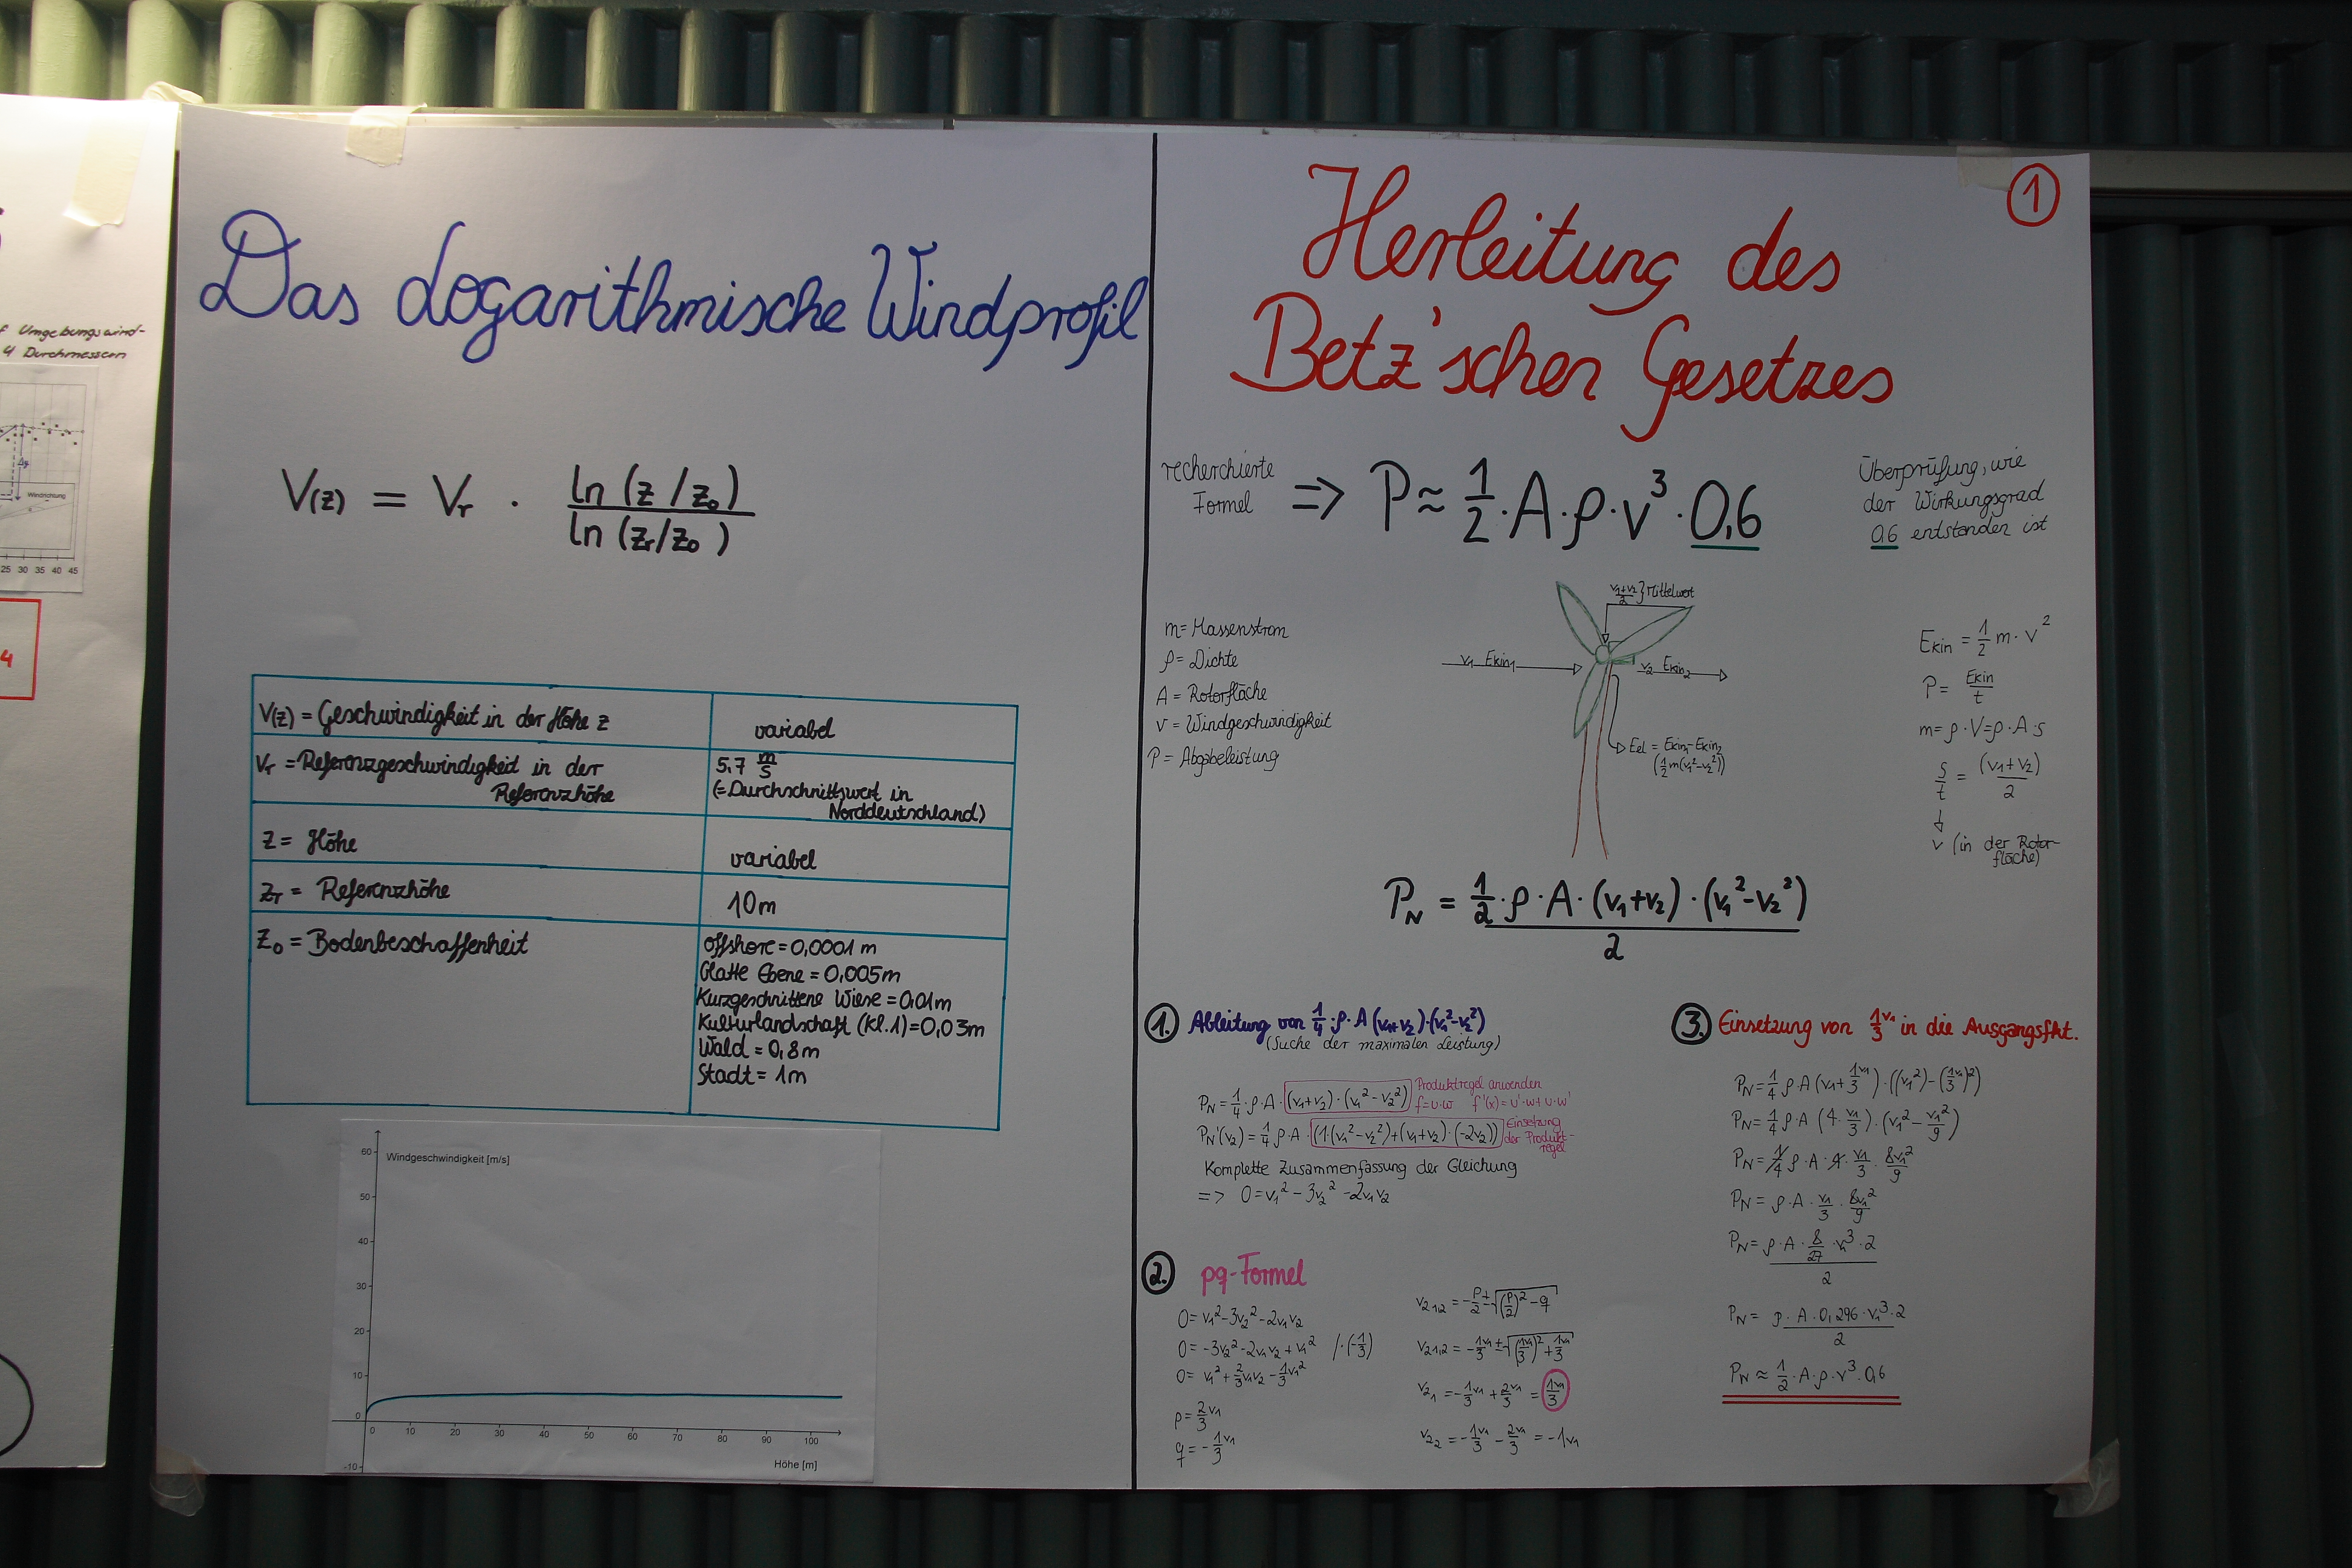 f Umgebungswind-
4 Durchmessern
Δy
Windrichtung
25 30 35 40 45
4
Das Logarithmische Windprofil
V(z) = Vr · ln (z/z₀) / ln (zr/z₀)
V(z) = Geschwindigkeit in der Höhe z
variabel
Vr = Referenzgeschwindigkeit in der
Referenzhöhe
5,7 m/s
(=Durchschnittswert in
Norddeutschland)
z = Höhe
variabel
zr = Referenzhöhe
10m
Z₀ = Bodenbeschaffenheit
offshore = 0,0001 m
Glatte Ebene = 0,005m
Kurzgeschnittene Wiese = 0,01m
Kulturlandschaft (Kl.1) = 0,03m
Wald = 0,8m
Stadt = 1m
Windgeschwindigkeit [m/s]
60
50
40
30
20
10
0
-10
0 10 20 30 40 50 60 70 80 90 100
Höhe [m]
1
Herleitung des
Betz'schen Gesetzes
recherchierte
Formel
=> P ≈ 1/2 · A · ρ · v³ · 0,6
Überprüfung, wie
der Wirkungsgrad
0,6 entstanden ist
m = Massenstrom
ρ = Dichte
A = Rotorfläche
v = Windgeschwindigkeit
P = Abgabeleistung
(v₁+v₂)/2 } Mittelwert
v₁ Ekin₁
v₂ Ekin₂
Eel = Ekin₁-Ekin₂
(1/2 m(v₁²-v₂²))
Ekin = 1/2 m · v²
P = Ekin/t
m = ρ · V = ρ · A · s
s/t = (v₁+v₂)/2
↓
v (in der Rotor-
fläche)
P_N = 1/2 · ρ · A · (v₁+v₂) · (v₁²-v₂²) / 2
1. Ableitung von 1/4 · ρ · A (v₁+v₂) · (v₁²-v₂²)
(Suche der maximalen Leistung)
P_N = 1/4 · ρ · A · (v₁+v₂) · (v₁²-v₂²)
Produktregel anwenden
f=u·w f'(x)=u'·w+u·w'
P_N'(v₂) = 1/4 ρ · A · (1·(v₁²-v₂²)+(v₁+v₂)·(-2v₂))
Einsetzung
der Produkt-
regel
Komplette Zusammenfassung der Gleichung
=> 0 = v₁² - 3v₂² - 2v₁v₂
2. pq-Formel
0 = v₁²-3v₂²-2v₁v₂
0 = -3v₂²-2v₁v₂+v₁² /·(-1/3)
0 = v₁²+2/3v₁v₂-1/3v₁²
p = 2/3 v₁
q = -1/3 v₁
v₂₁,₂ = -p/2 ± √((p/2)²-q)
v₂₁,₂ = -1v₁/3 ± √((1v₁/3)²+1v₁/3)
v₂₁ = -1/3v₁ + 2v₁/3 = 1v₁/3
v₂₂ = -1v₁/3 - 2v₁/3 = -1v₁
3. Einsetzung von 1/3 v₁ in die Ausgangsfkt.
P_N = 1/4 ρ · A (v₁+1/3 v₁) · ((v₁²)-(1v₁/3)²)
P_N = 1/4 ρ · A (4 · v₁/3) · (v₁²-v₁²/9)
P_N = 1/4 ρ · A · 4 · v₁/3 · 8v₁²/9
P_N = ρ · A · v₁/3 · 8v₁²/9
P_N = ρ · A · 8/27 · v₁³ · 2 / 2
P_N = ρ · A · 0,296 · v₁³ · 2 / 2
P_N ≈ 1/2 · A · ρ · v³ · 0,6